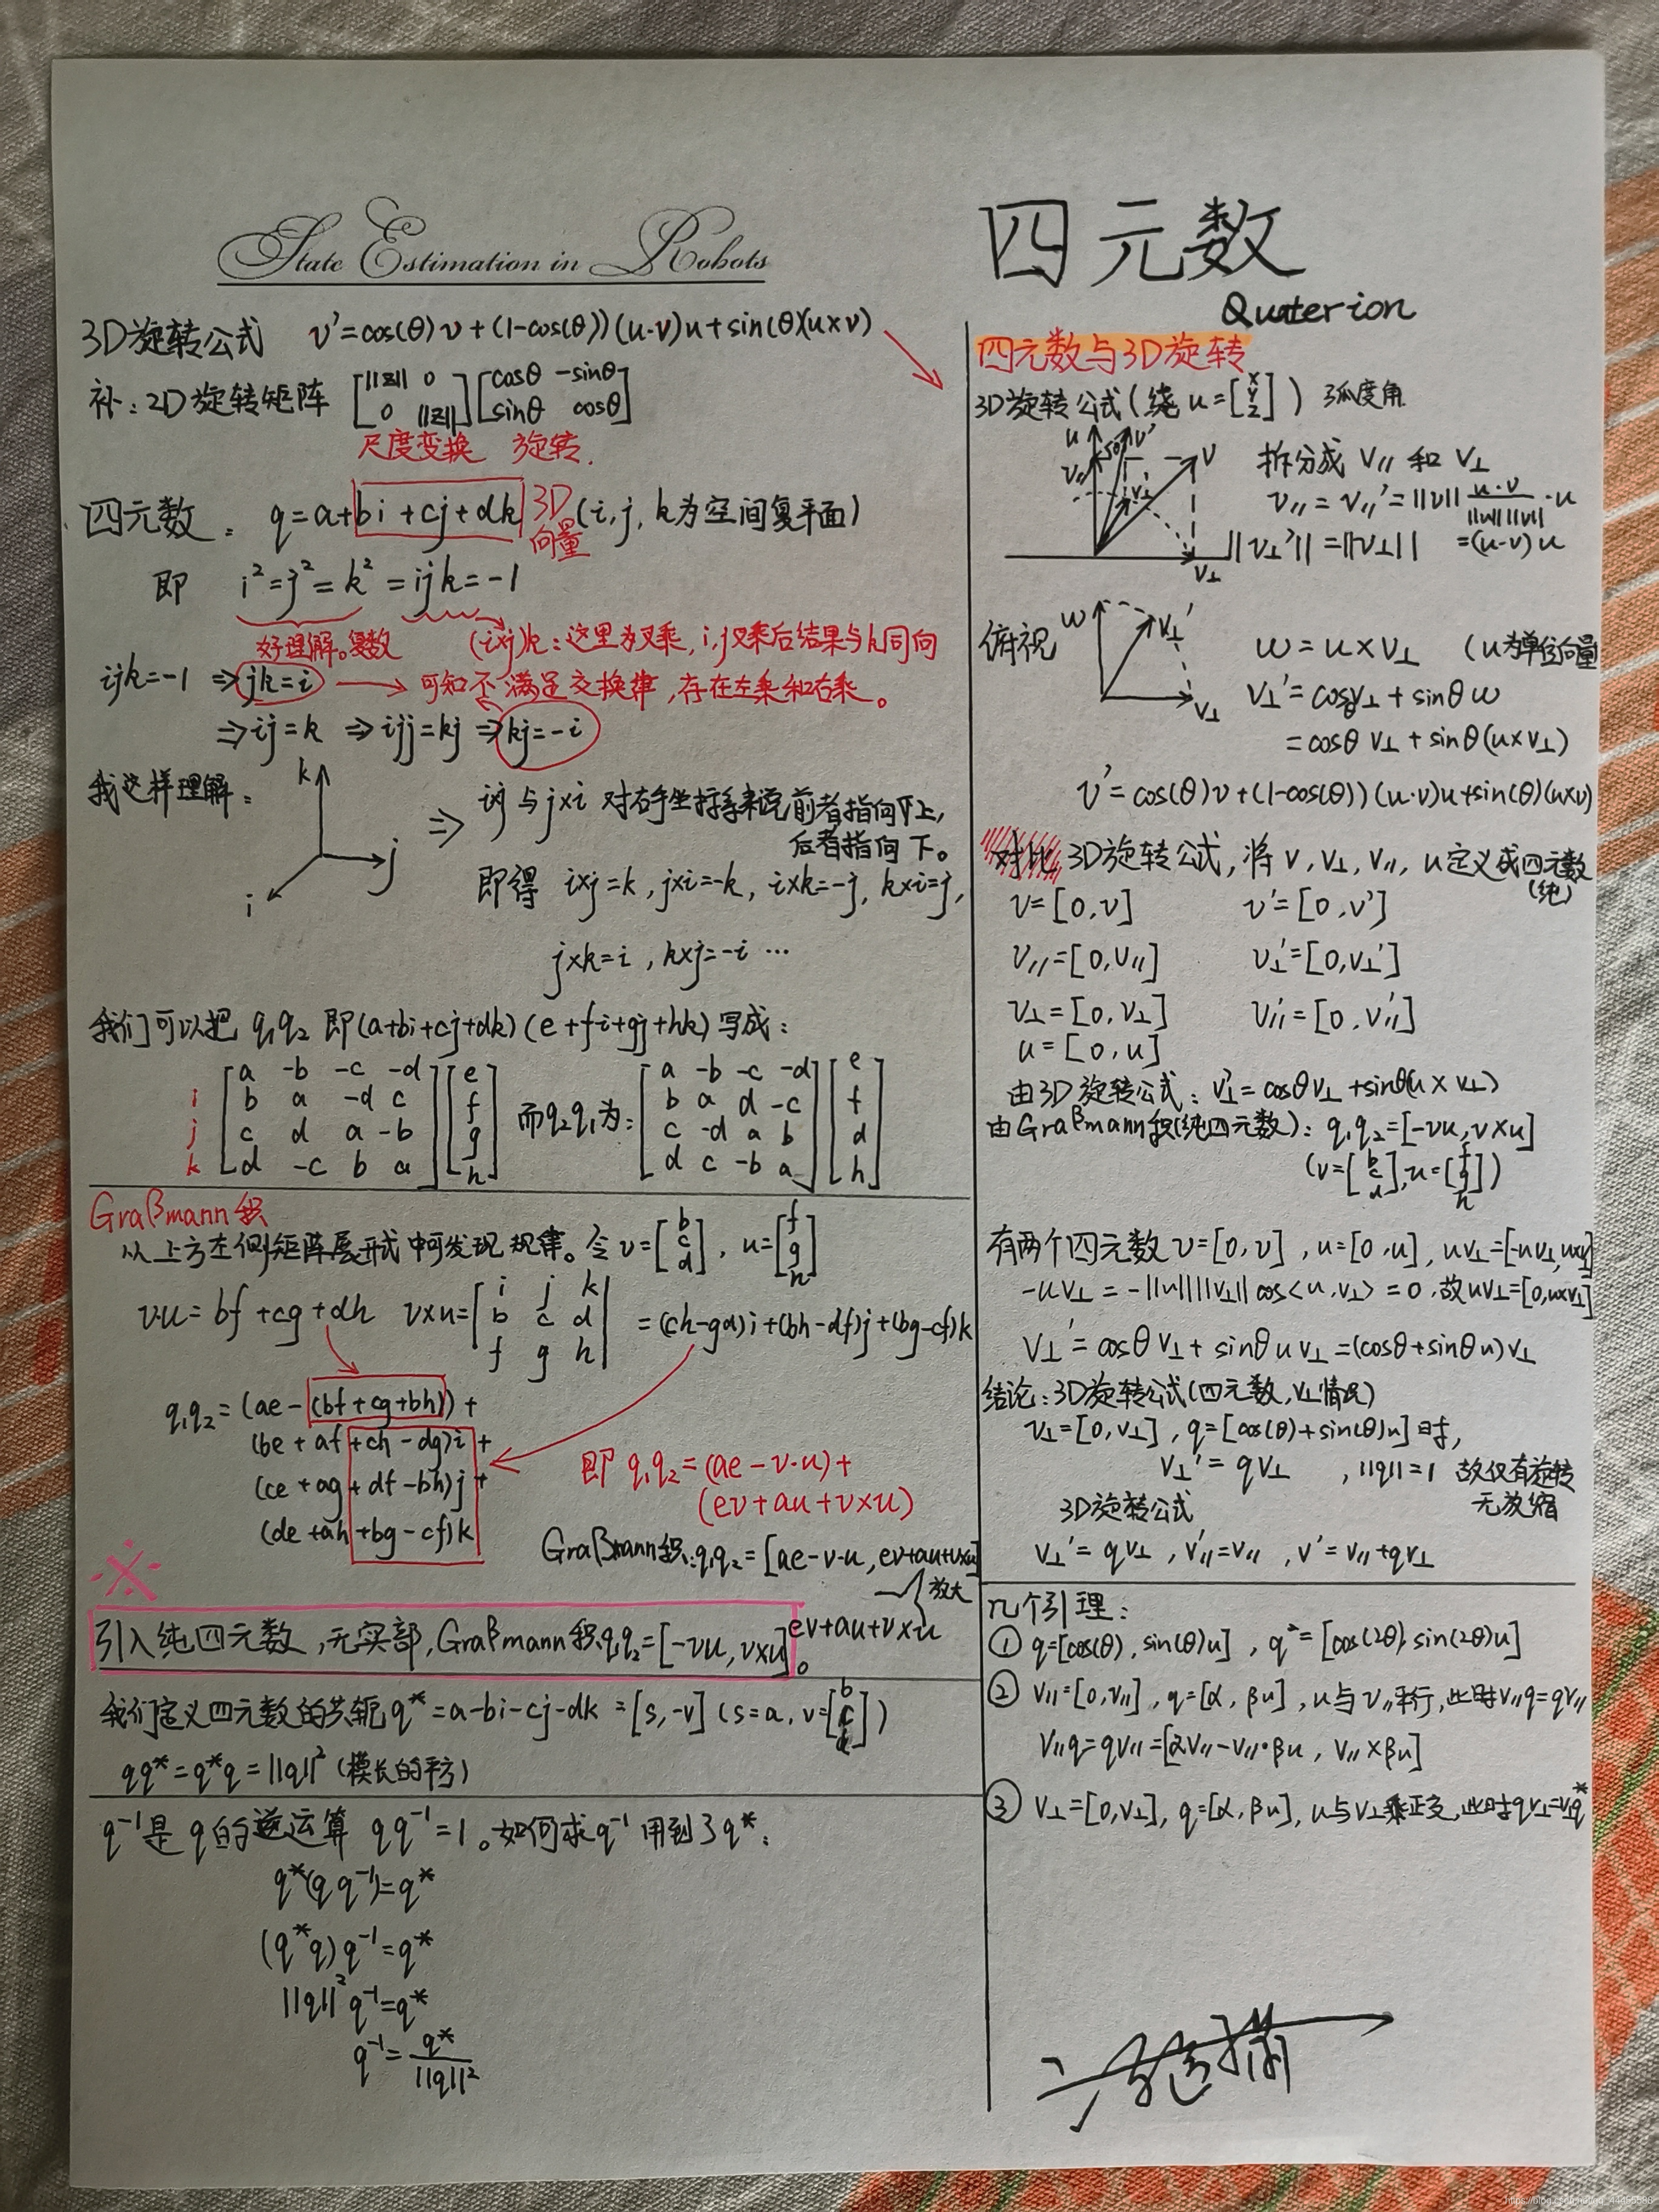 State Estimation in Robots
四元数
Quaterion
3D旋转公式 v'=cos(θ)v+(1-cos(θ))(u·v)u+sin(θ)(u×v)
补:2D旋转矩阵 [||z|| 0 0 ||z||] [cosθ -sinθ sinθ cosθ]
尺度变换 旋转.
四元数: q=a+bi+cj+dk 3D向量 (i,j,k为空间复平面)
即 i²=j²=k²=ijk=-1
好理解。复数 (i×j)k:这里为叉乘,i,j叉乘后结果与k同向
ijk=-1 ⇒ jk=i → 可知不满足交换律,存在左乘和右乘。
⇒ij=k ⇒ijj=kj ⇒kj=-i
我这样理解:
k
j
i
⇒ i×j 与 j×i 对右手坐标系来说前者指向上,
后者指向下。
即得 i×j=k, j×i=-k, i×k=-j, k×i=j,
j×k=i, k×j=-i ···
我们可以把 q₁q₂ 即(a+bi+cj+dk)(e+fi+gj+hk)写成:
a -b -c -d e a -b -c -d e
i b a -d c f 而q₂q₁为: b a d -c f
j c d a -b g c -d a b d
k d -c b a h d c -b a h
Graβmann积
从上方左侧矩阵展开式中可发现规律。令 v=[b c d], u=[f g h]
vu=bf+cg+dh v×u=|i j k b c d f g h| =(ch-gd)i+(bh-df)j+(bg-cf)k
q₁q₂=(ae-(bf+cg+bh))+
(be+af+ch-dg)i+
(ce+ag+df-bh)j+
(de+ah+bg-cf)k
即 q₁q₂=(ae-v·u)+
(ev+au+v×u)
Graβmann积:q₁q₂=[ae-v·u, ev+au+v×u]
放大
ev+au+v×u
※
引入纯四元数,无实部,Graβmann积q₁q₂=[-vu, v×u]。
我们定义四元数的共轭q*=a-bi-cj-dk=[s,-v](s=a, v=[b c d])
qq*=q*q=||q||²(模长的平方)
q⁻¹是q的逆运算 qq⁻¹=1。如何求q⁻¹用到了q*:
q*(qq⁻¹)=q*
(q*q)q⁻¹=q*
||q||²q⁻¹=q*
q⁻¹=q*/||q||²
四元数与3D旋转
3D旋转公式(绕u=[x y z])弧度角
u v' v
v// v⊥
拆分成 v// 和 v⊥
v//=v//'=||v|| u·v/||u||||v|| ·u
||v⊥'||=||v⊥|| =(u·v)u
俯视 w v⊥' v⊥
w=u×v⊥ (u为单位向量
v⊥'=cosθv⊥+sinθw
=cosθv⊥+sinθ(u×v⊥)
v'=cos(θ)v+(1-cos(θ))(u·v)u+sin(θ)(u×v)
对比 3D旋转公式,将v,v⊥,v//,u定义成四元数
(纯)
v=[0,v] v'=[0,v']
v//=[0,v//] v⊥'=[0,v⊥']
v⊥=[0,v⊥] v//'=[0,v//']
u=[0,u]
由3D旋转公式:v⊥'=cosθv⊥+sinθ(u×v⊥)
由Graβmann积(纯四元数):q₁q₂=[-vu, v×u]
(v=[b c d], u=[f g h])
有两个四元数v=[0,v], u=[0,u], uv⊥=[-uv⊥, u×v⊥]
-uv⊥=-||u||||v⊥||cos<u,v⊥>=0,故uv⊥=[0,u×v⊥]
v⊥'=cosθv⊥+sinθuv⊥=(cosθ+sinθu)v⊥
结论:3D旋转公式(四元数,v⊥情况)
v⊥=[0,v⊥], q=[cos(θ)+sin(θ)u]时,
v⊥'=qv⊥ ,||q||=1 故仅有旋转
无放缩
3D旋转公式
v⊥'=qv⊥, v//'=v//, v'=v//+qv⊥
几个引理:
① q=[cos(θ), sin(θ)u], q²=[cos(2θ), sin(2θ)u]
② v//=[0,v//], q=[α, βu], u与v//平行,此时v//q=qv//
v//q=qv//=[αv//-v//·βu, v//×βu]
③ v⊥=[0,v⊥], q=[α, βu], u与v⊥正交,此时qv⊥=v⊥q*